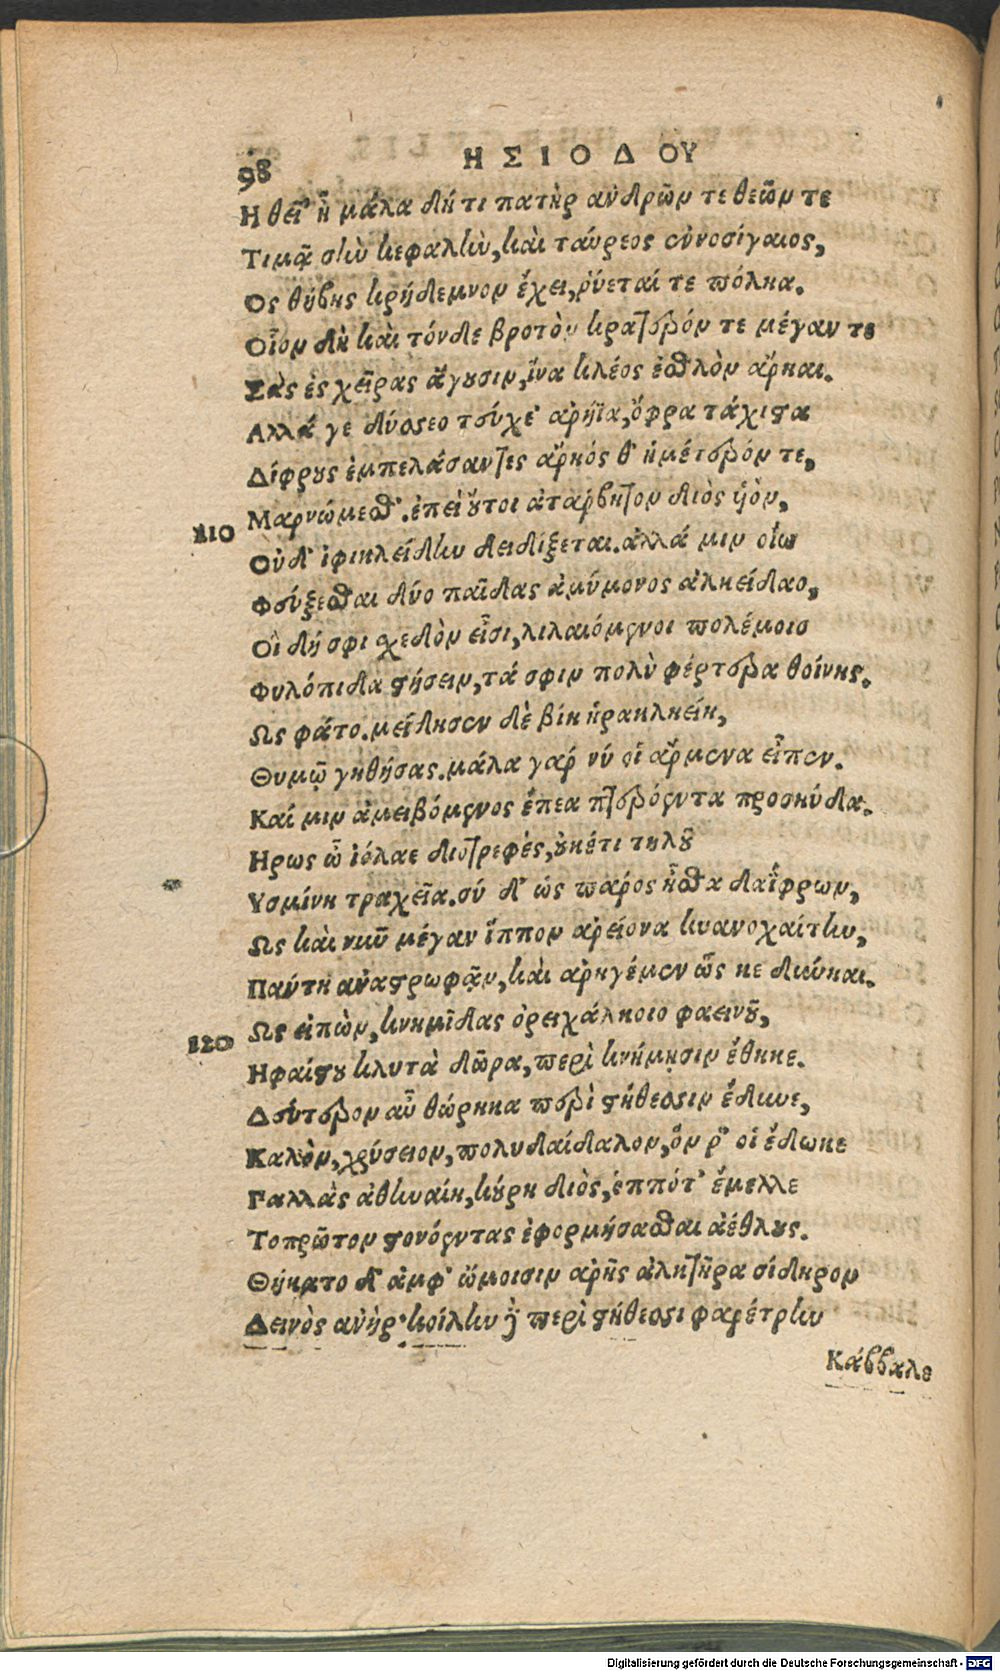 98
ΗΣΙΟΔΟΥ
Ηθεῖ' ἦ μάλα δή τι πατὴρ ἀνδρῶν τε θεῶν τε
Τιμᾷ σὴν κεφαλὴν, καὶ ταύρεος ἐννοσίγαιος,
Ος θήβης κρήδεμνον ἔχει, ῥύεταί τε πόληα.
Οἷον δὴ καὶ τόνδε βροτὸν κρατερόν τε μέγαν τε
Σὰς ἐς χεῖρας ἄγουσιν, ἵνα κλέος ἐσθλὸν ἄρηαι.
Αλλά γε δύσεο τεύχε' ἀρήϊα, ὄφρα τάχιστα
Δίφρους ἐμπελάσαντες ἄρηός θ' ἡμέτερόν τε,
110 Μαρνώμεσθ'. ἐπεὶ οὔτοι ἀτάρβητον διὸς υἱὸν,
Οὐδ' ἰφικλείδην δειδίξεται. ἀλλά μιν οἴω
Φεύξεσθαι δύο παῖδας ἀμύμονος ἀλκείδαο,
Οἳ δή σφι σχεδὸν εἶσι, λιλαιόμενοι πολέμοιο
Φυλόπιδα στήσειν, τά σφιν πολὺ φέρτερα θοίνης.
Ως φάτο. μείδησεν δὲ βίη ἡρακληείη,
Θυμῷ γηθήσας. μάλα γάρ νύ οἱ ἄρμενα εἶπεν.
Καί μιν ἀμειβόμενος ἔπεα πτερόεντα προσηύδα.
Ηρως ὦ ἰόλαε διοτρεφὲς, οὐκέτι τηλοῦ
Υσμίνη τραχεῖα. σύ δ' ὡς πάρος ἦσθα δαΐφρων,
Ως καὶ νῦν μέγαν ἵππον ἀρείονα κυανοχαίτην,
Πάντη ἀναστρωφᾷν, καὶ ἀρηγέμεν ὥς κε δύνηαι.
120 Ως εἰπὼν, κνημῖδας ὀρειχάλκοιο φαεινοῦ,
Ηφαίστου κλυτὰ δῶρα, περὶ κνήμησιν ἔθηκε.
Δεύτερον αὖ θώρηκα περὶ στήθεσσιν ἔδυνε,
Καλὸν, χρύσειον, πολυδαίδαλον, ὅν ῥ' οἱ ἔδωκε
Γαλλὰς ἀθηναίη, κούρη διὸς, ὁππότ' ἔμελλε
Τοπρῶτον στονόεντας ἐφορμήσασθαι ἀέθλους.
Θήκατο δ' ἀμφ' ὤμοισιν ἀρῆς ἀλκτῆρα σίδηρον
Δεινὸς ἀνήρ· κοίλην δὲ περὶ στήθεσσι φαρέτρην
Κάββαλε
Digitalisierung gefördert durch die Deutsche Forschungsgemeinschaft - DFG